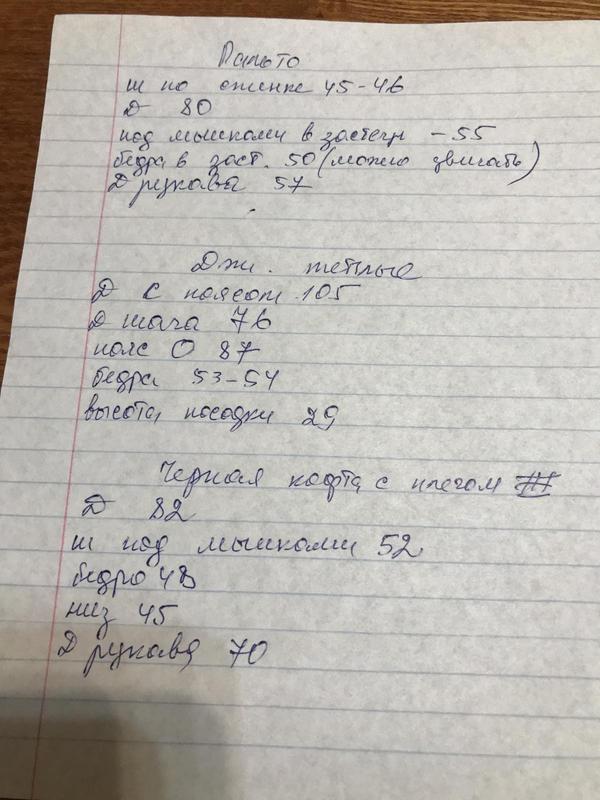 Пальто
ш по спинке 45-46
Д 80
под мышками в застегн - 55
бедра в заст. 50 (можно двигать)
Д рукава 57
Дж. теплые
Д с поясом 105
Д шага 76
пояс О 87
бедра 53-54
высота посадки 29
Черная кофта с плечом
Д 82
ш под мышками 52
бедро 48
низ 45
Д рукава 70